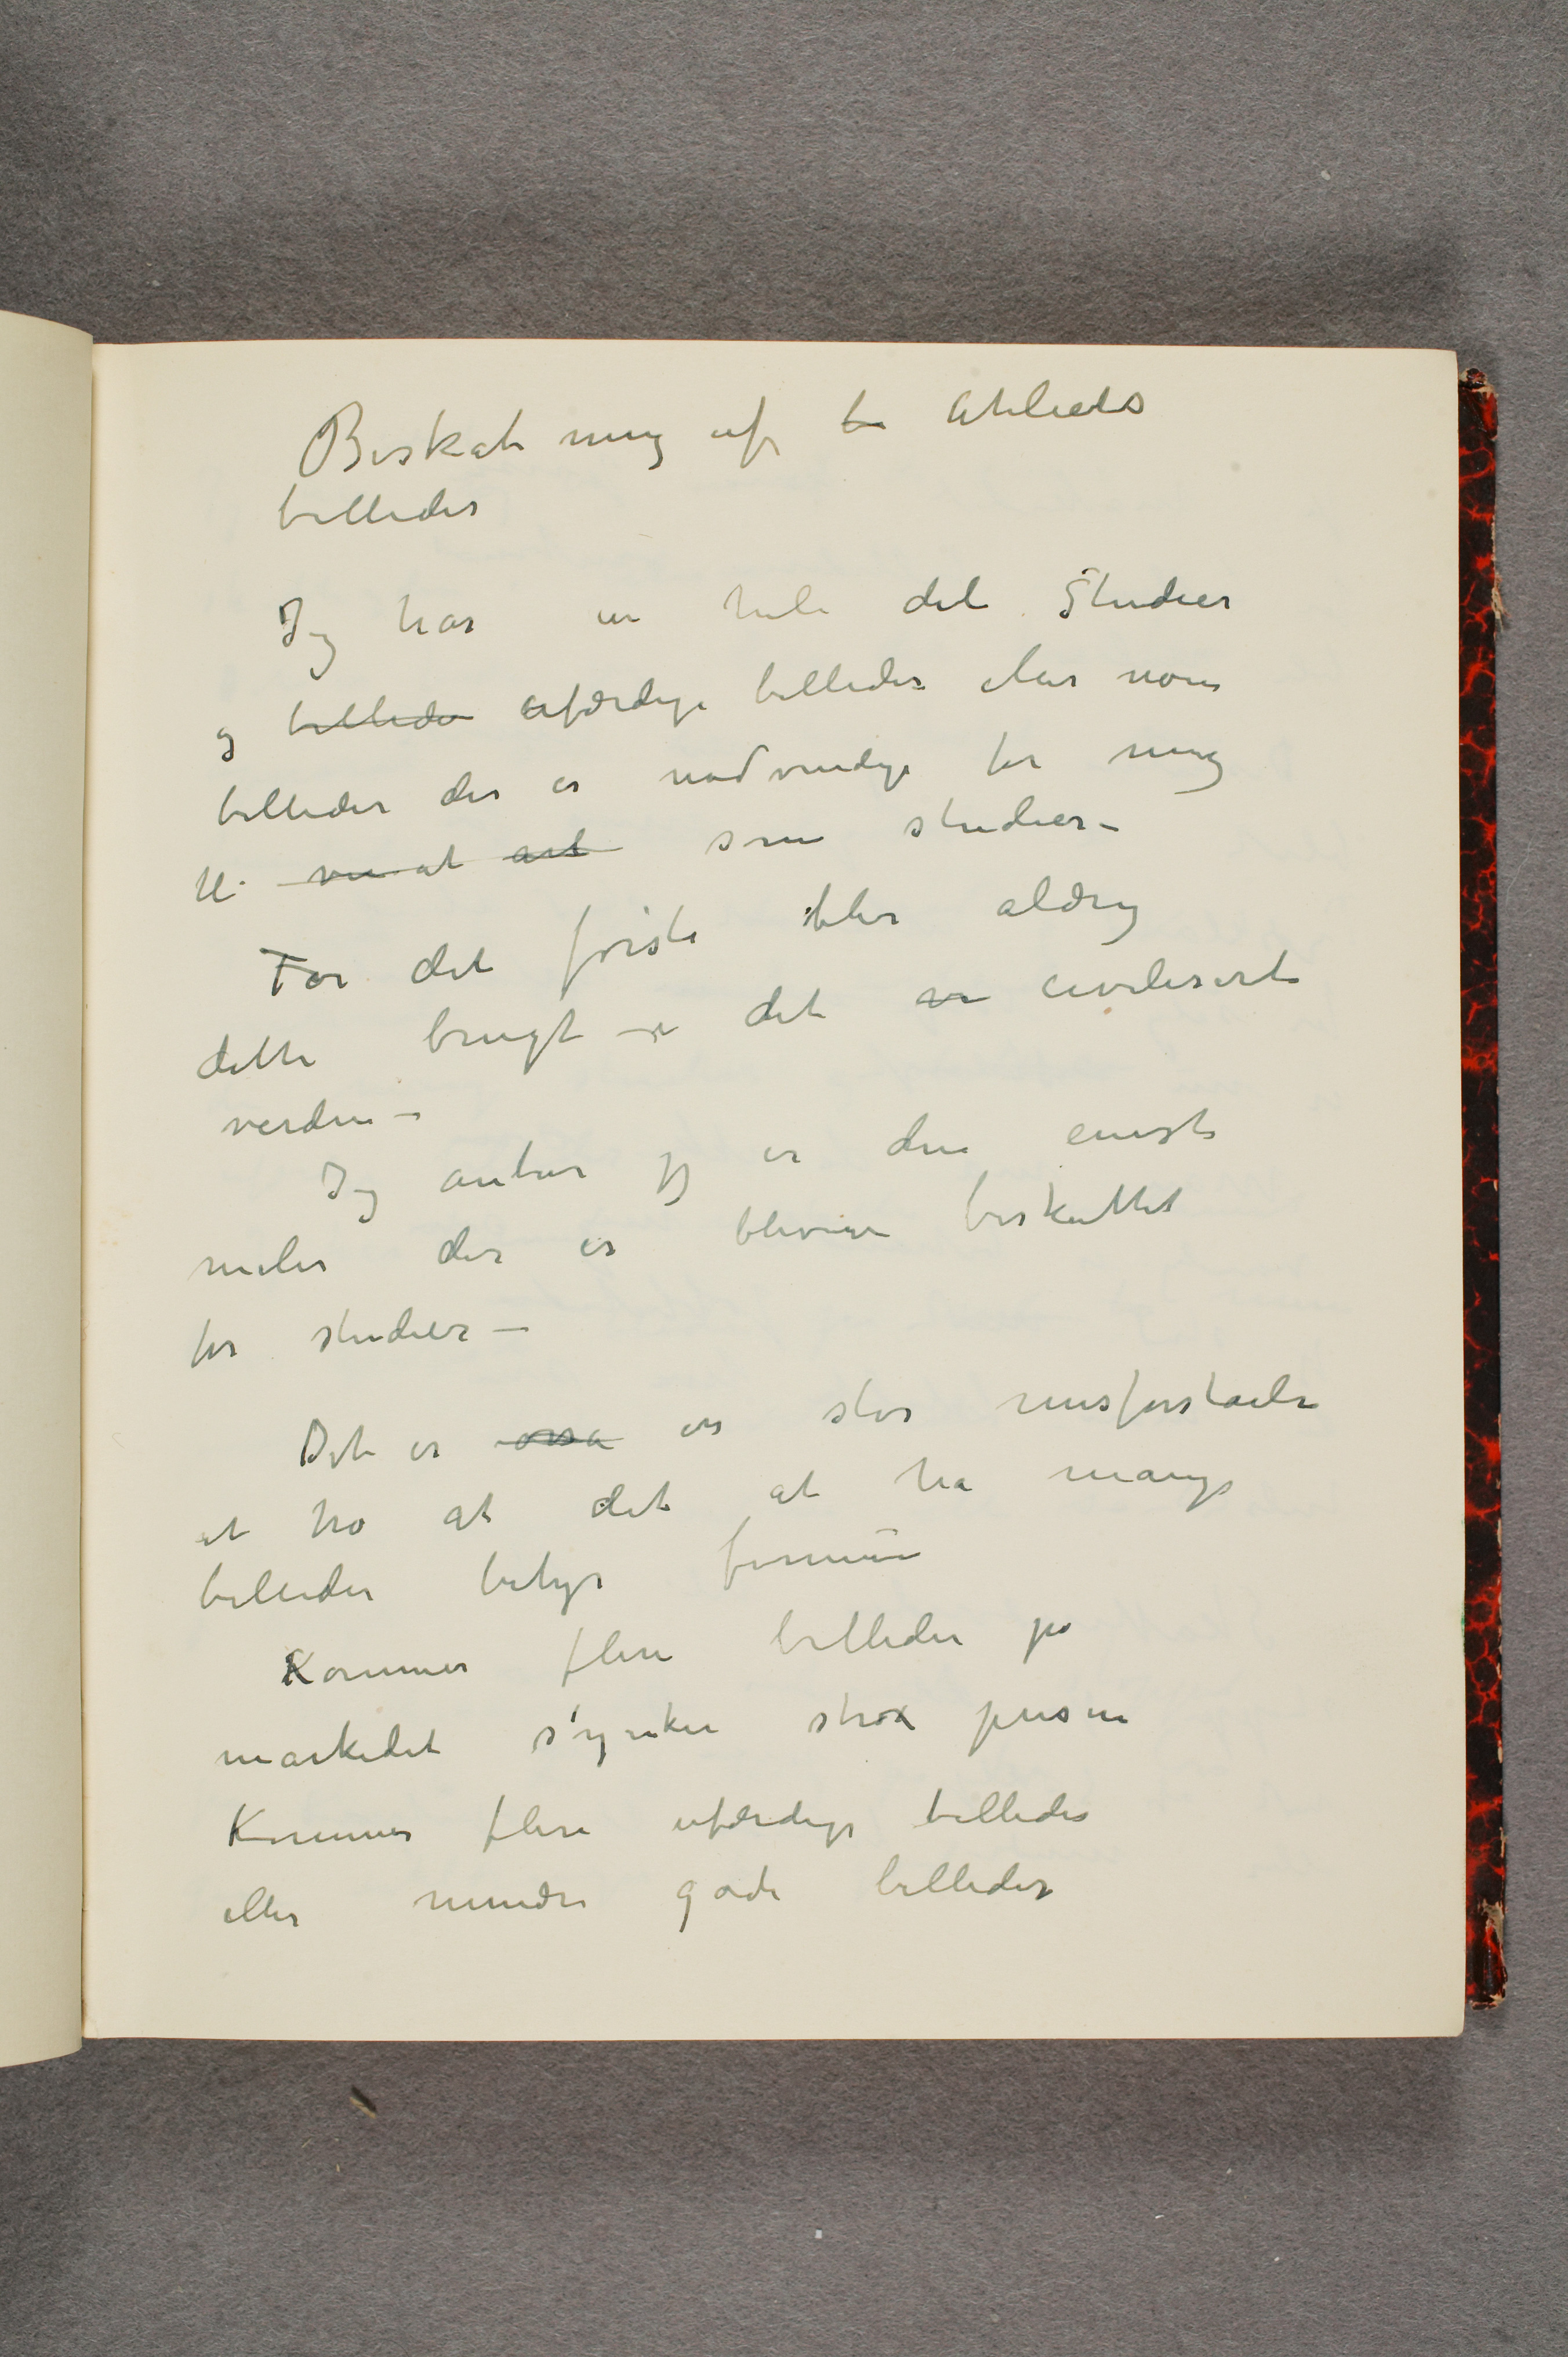 Beskatning af b Atelieds
billeder
Jeg har en hele del Studier
og billeder Ufærdige billeder eller
billeder der er nødvendige for mig
til at som studier –
For det første blir aldrig
dette brugt i det civiliserte
verden –
Jeg antar jeg er den eneste
maler der er bleven beskattet
for studier –
Det er også en stor misforståelse
at tro at det at ha mange
billeder betyr formue
Kommer flere billeder på
markedet synker strax prisen
Kommer flere ufærdige billeder
eller mindre gode billeder